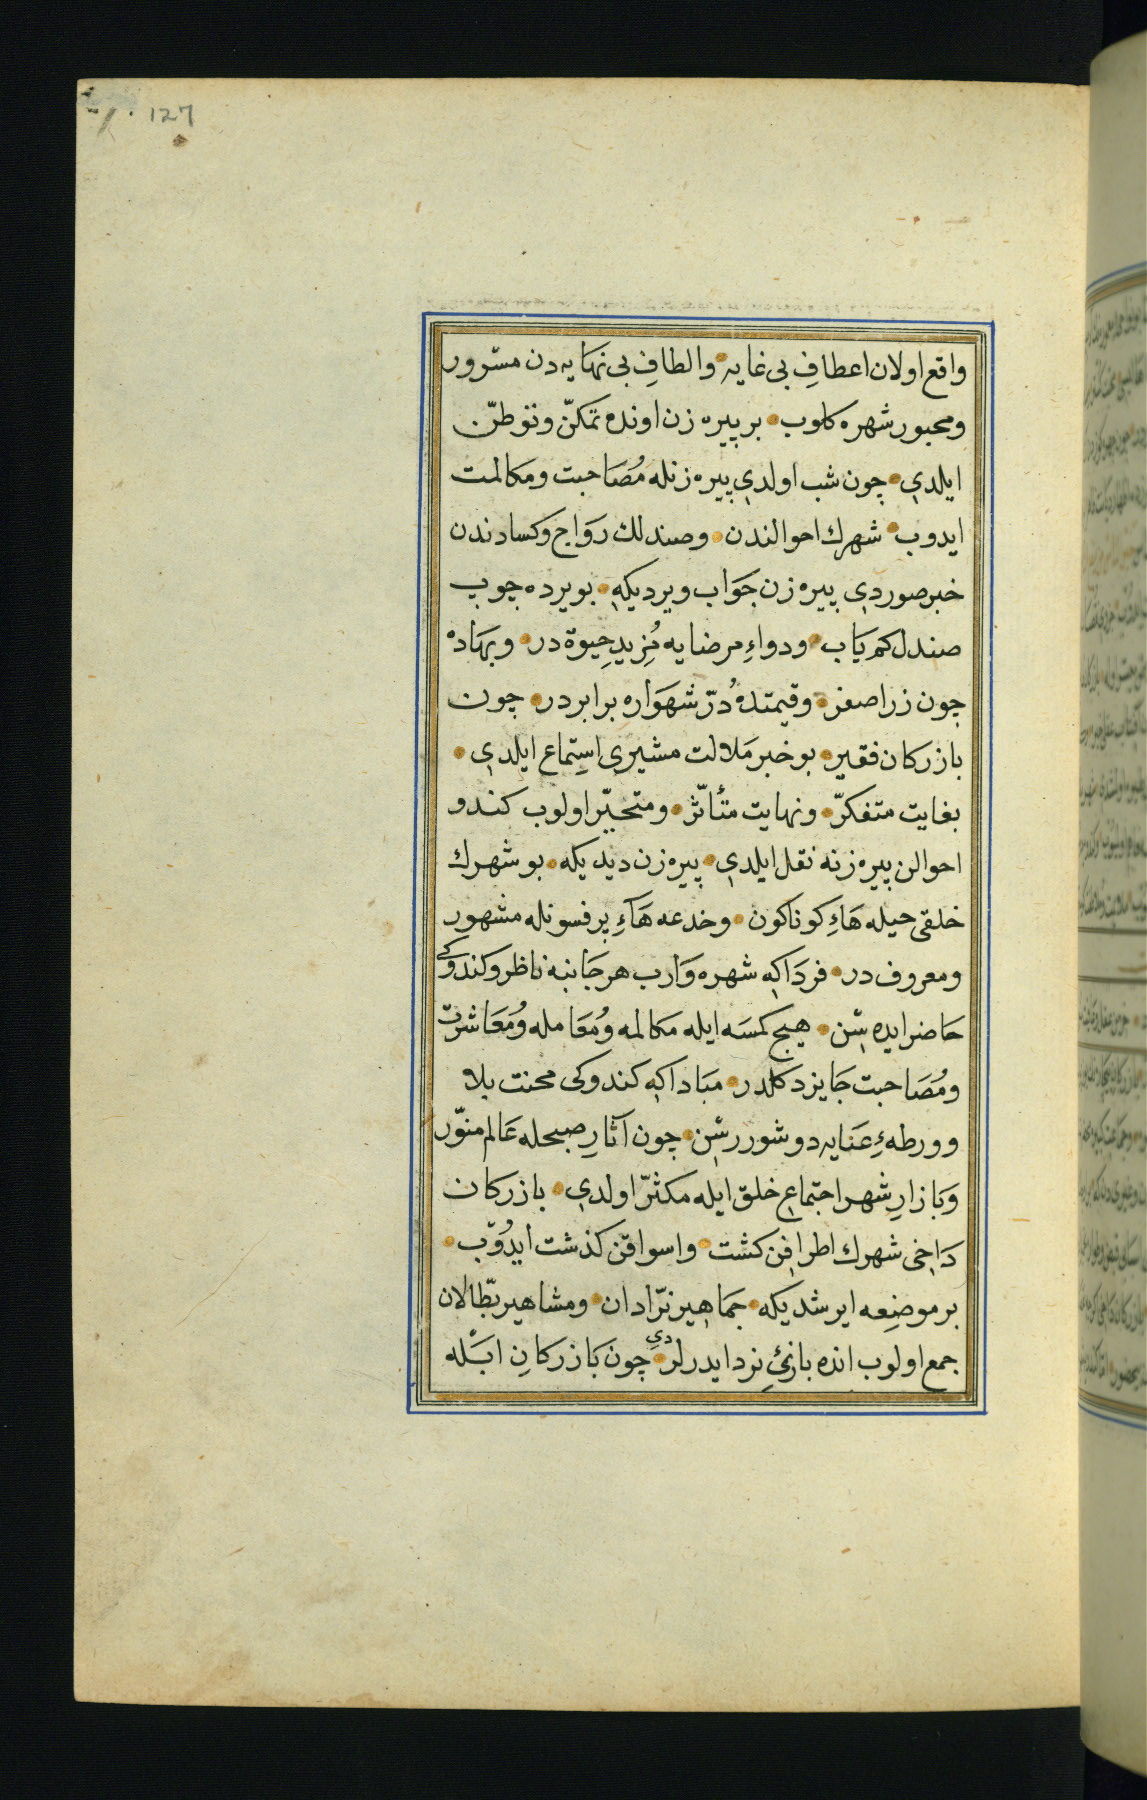 127
واقع اولان اعطافِ بی غایه والطافِ بی نهایه دن مسرور
ومحبور شهره کلوب بر پیره زن اونده تمکّن وتوطّن
ایلدی چون شب اولدی پیره زنله مُصَاحبت ومکالمت
ایدوب شهرك احوالندن وصندلك رَوَاج وکسادندن
خبر صوردی پیره زن جَوَاب ویردیکهِ بویرده چوب
صندل کم یَاب ودواءِ مرضایه مُزیدِ حِیوة در وبهَاده
چون زر اصفر وقیمتدهُ دُرّ شهوَاره برابردر چون
بازرکان فقیر بو خبر مَلالت مشیری اِستِماع ایلدی
بغایت متفکرّ ونهایت متأثّر ومتحیّر اولوب کندو
احوالن پیره زنه نقل ایلدی پیره زن دیدیکه بو شهرك
خلقی حیله هَاءِ کوناکون وخدعه هَاءِ پرفسونله مشهور
ومعروف در فردَا کهِ شهره وَارب هر جَانبه ناظر وکندوکی
حَاضر ایده سِن هیج کمسَه ایله مکالمه ومُعَامله ومُعَاشرت
ومُصَاحبت جَایز دکلدر مبَادا کهِ کندوکی محنت بلا
وورطهءِ عَنایه دوشوررسِن چون آثارِ صبحله عَالم منوّر
وَبَازارِ شهر اجتماعِ خلق ایله مکثرّ اولدی بازرکان
دَاخِی شهرك اطرافِن کشت واسواقن کذشت ایدُوّب
بر موضِعه ایرشدیکه جمَاهِیر نرّادان ومشاهیر بطّالان
جمع اولوب انده بازیءِ نرد ایدرلردی چون بَازرکانِ ابَْله